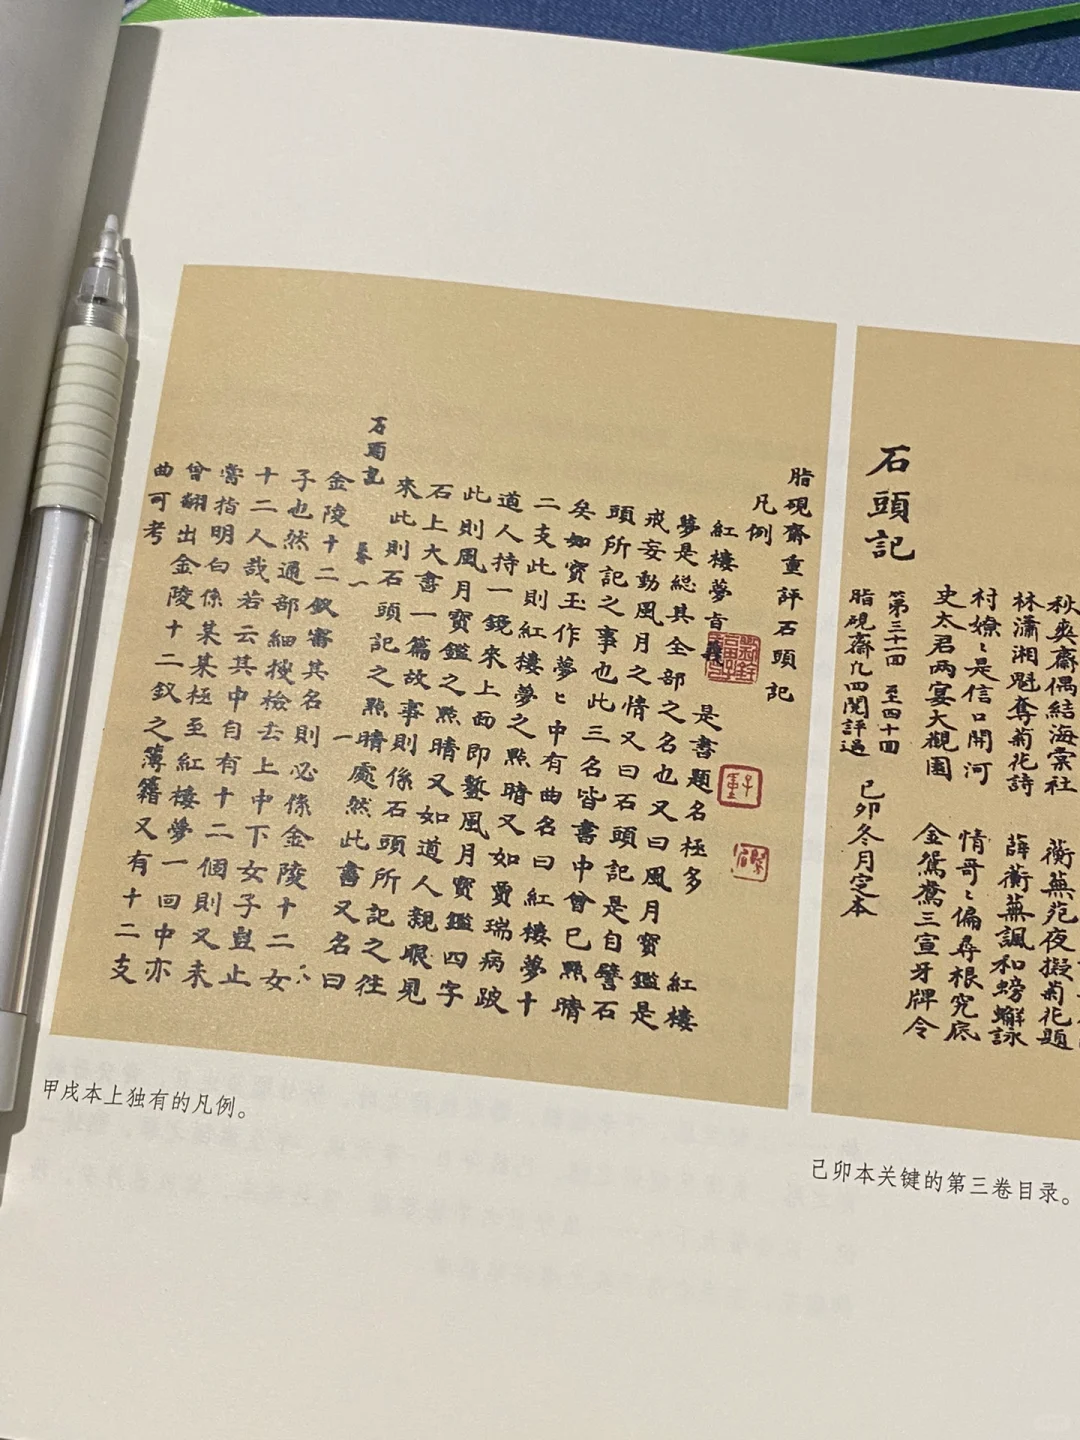 脂硯齋重評石頭記
凡例
紅樓夢旨義 是書題名極多 紅樓
夢是総其全部之名也又曰風月寳鑑是
戒妄動風月之情又曰石頭記是自譬石
頭所記之事也此三名皆書中曾已㸃睛
矣如寳玉作夢〻中有曲名曰紅樓夢十
二支此則紅樓夢之㸃睛又如賈瑞病跛
道人持一鏡來上面即鏨風月寳鑑四字
此則風月寳鑑之㸃睛又如道人親眼見
石上大書一篇故事則係石頭所記之往
來此則石頭記之㸃睛處然此書又名曰
石頭記 卷一 一
金陵十二釵審其名則必係金陵十二女
子也然通部細搜檢去上中下女子豈止
十二人哉若云其中自有十二個則又未
嘗指明白係某某極至紅樓夢一回中亦
曾翻出金陵十二釵之薄籍又有十二支
曲可考
子重
甲戌本上独有的凡例。
秋爽齋偶結海棠社 蘅蕪苑夜擬菊花題
林瀟湘魁奪菊花詩 薛蘅蕪諷和螃蠏詠
村嫽〻是信口開河 情哥〻偏尋根究底
史太君両宴大觀園 金鴛鴦三宣牙牌令
石頭記
第三十一回 至四十回
脂硯齋凢四閱評過 己卯冬月定本
己卯本关键的第三卷目录。